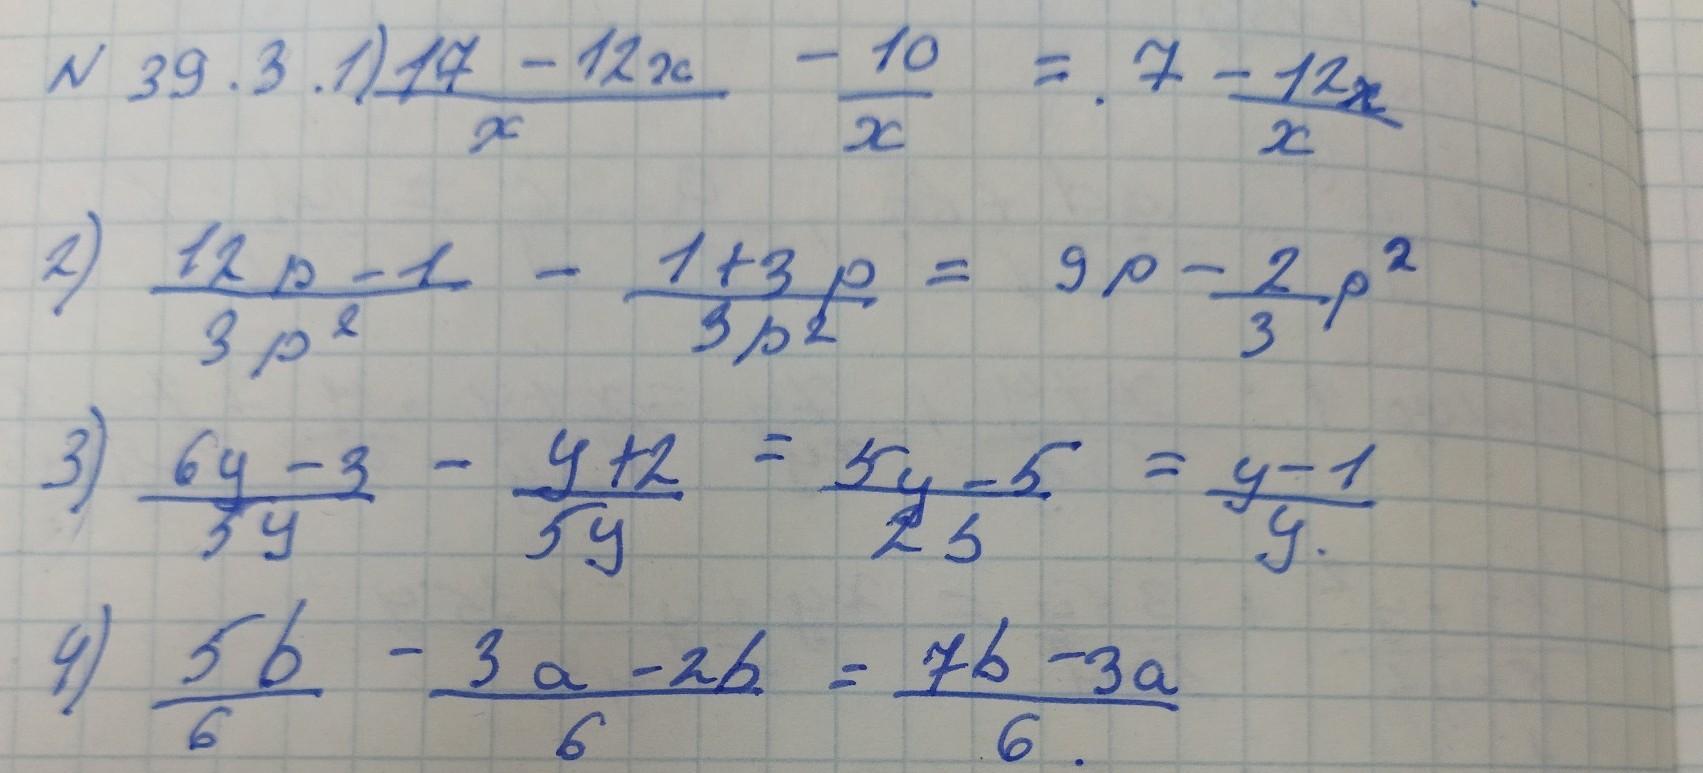 N 39.3.1) 17 - 12x / x - 10 / x = 7 - 12x / x
2) 12p - 1 / 3p² - 1 + 3p / 3p² = 9p - 2 / 3 p²
3) 6y - 3 / 5y - y + 2 / 5y = 5y - 5 / 25 = y - 1 / y.
4) 5b / 6 - 3a - 2b / 6 = 7b - 3a / 6.